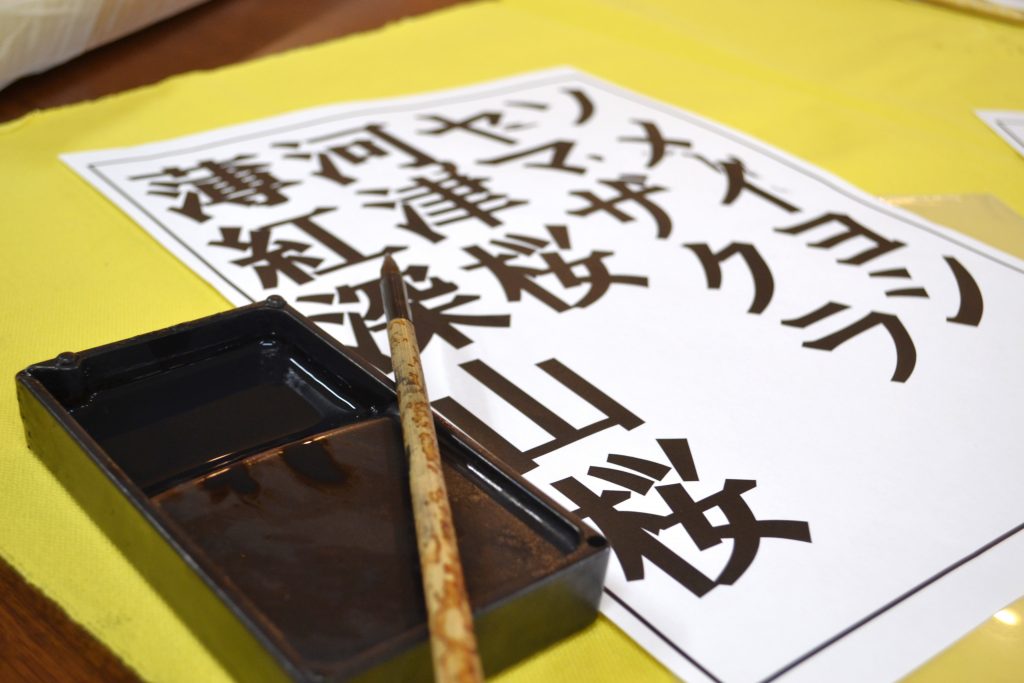 ソメイヨシノ
ヤマザクラ
河津桜
薄紅深山桜